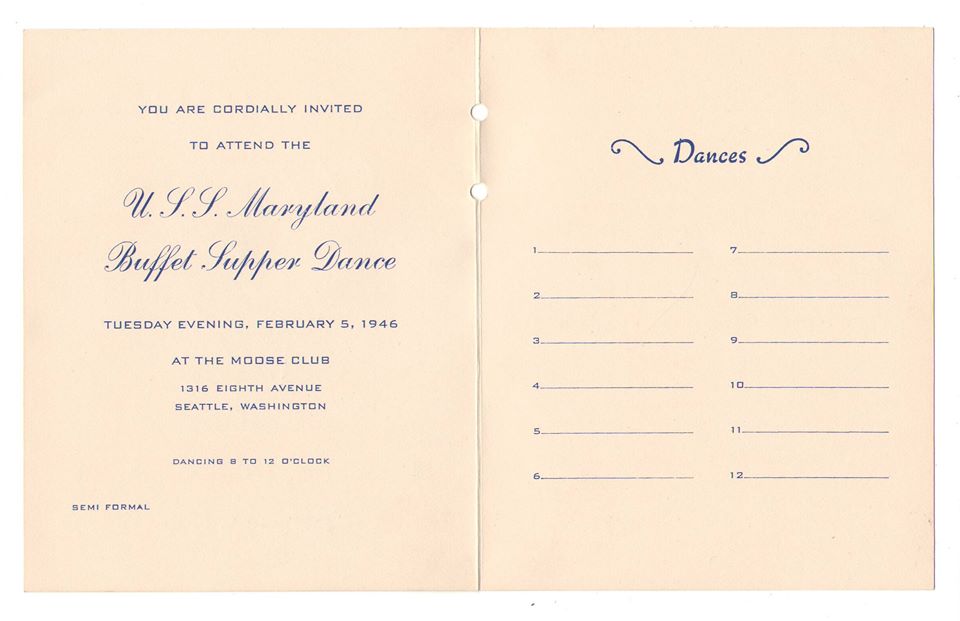 YOU ARE CORDIALLY INVITED
TO ATTEND THE
U.S.S. Maryland
Buffet Supper Dance
TUESDAY EVENING, FEBRUARY 5, 1946
AT THE MOOSE CLUB
1316 EIGHTH AVENUE
SEATTLE, WASHINGTON
DANCING 8 TO 12 O'CLOCK
SEMI FORMAL
Dances
1
2
3
4
5
6
7
8
9
10
11
12